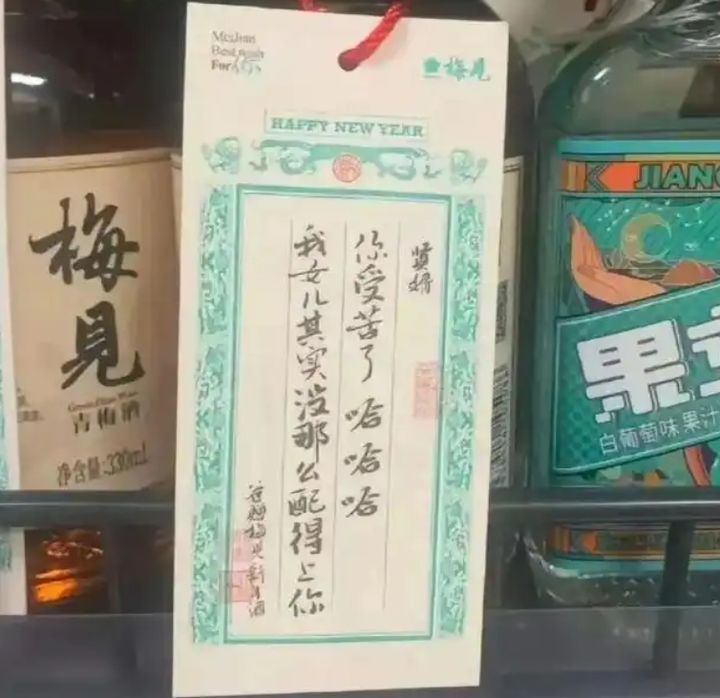 MeiJian
Best wish
For 你
梅見
HAPPY NEW YEAR
贤婿
你受苦了 哈哈哈
我女儿其实没那么配得上你
谷赠梅见新年酒
梅見
Green Plum Wine
青梅酒
净含量:330mL
JIANG
果立
白葡萄味果汁